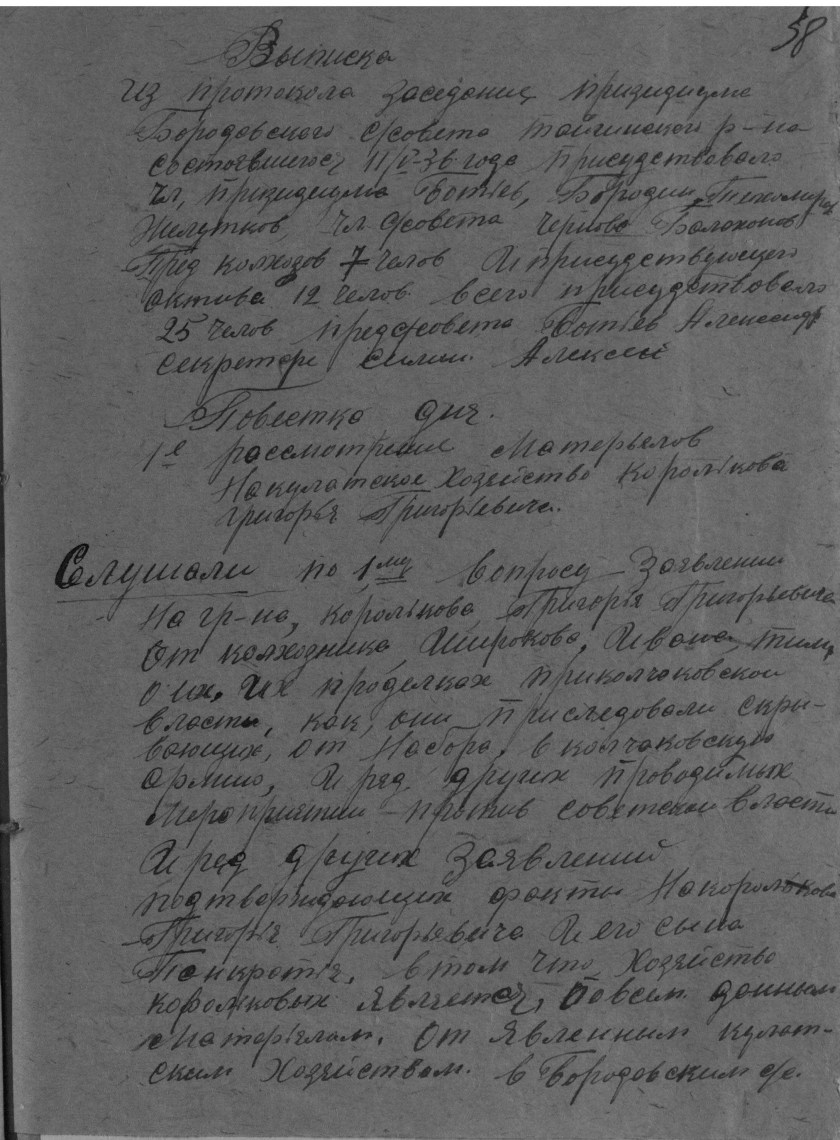 58
Выписка
из протокола заседания призидиума
Бородовского с/совета тайгинского р-на
состоявшегося 11/V-36 года присудствовало
чл, призидиума Ботьев, Бородин,
Желутков чл с/совета Чернова Балахонов
Пред колхозов 7 челов И присудствующего
актива 12 челов. всего присудствовало
25 челов предс/совета Ботьев Александр
секретарь Алексей
Повестка дня.
1е рассмотрение Матерьялов
На кулатское хозейство Королькова
григорья Григорьевича.
Слушали по 1му вопросу – Заявлении
На гр-на, королькова, Григорья Григорьевича
От колхозника Широкова, Ивана, тим,
о их. их проделках приколчаковской
власти, как, они приследовали скры-
вающих, от Набора, в колчаковскую
армию, И ряд других проводимых
мероприятии против советской власти
И ряд других Заявлений
подтверждающих факты На королькова
Григорья Григорьевича И его сына
Панкратья, в том что Хозяйство
корольковых является, по всем данным
Матерьялам, От явленным кулат-
ским Хозяйством. в Бородовским с/с.